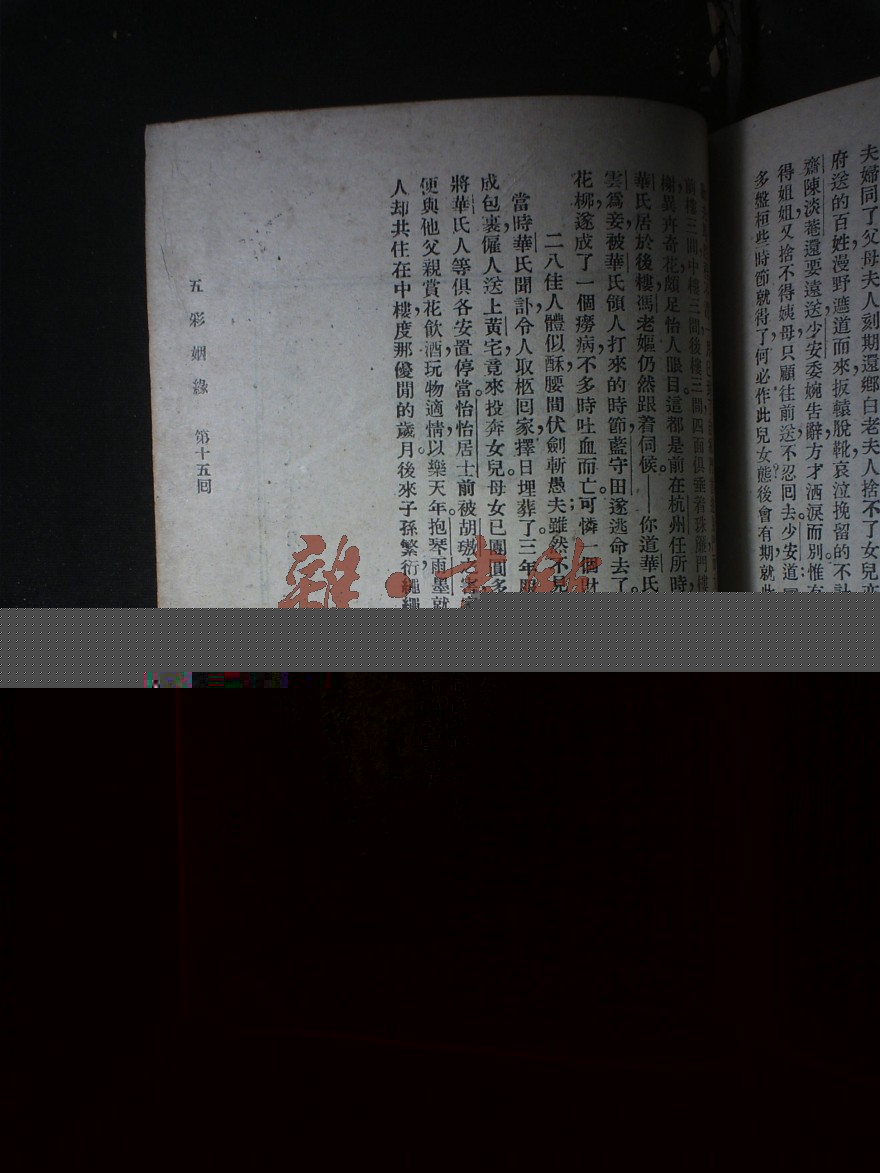 夫婦同了父母夫人刻期還鄉白老夫人捨不了女兒亦
府送的百姓漫野遮道而來扳轅脫靴哀泣挽留的不計
齋陳淡菴還要遠送少安委婉告辭方才洒淚而別惟有
得姐姐又捨不得姨母只顧往前送不忍回去少安道
多盤桓些時節就得了何必作此兒女態後會有期就此
前樓三間中樓三間後樓三間四面俱垂着珠簾門樓
榭異卉奇花頗足怡人眼目這都是前在杭州任所時
華氏居於後樓馮老嫗仍然跟着伺候——你道華氏
雲爲妾被華氏領人打來的時節藍守田遂逃命去了
花柳遂成了一個癆病不多時吐血而亡可憐一個財
二八佳人體似酥腰間伏劍斬愚夫雖然不見
當時華氏聞訃令人取柩回家擇日埋葬了三年
成包裹僱人送上黃宅竟來投奔女兒母女已團圓多
將華氏人等俱各安置停當怡怡居士前被胡璈之害家
便與他父親賞花飲酒玩物適情以樂天年抱琴雨墨就
人却共住在中樓度那優閒的歲月後來子孫繁衍繩繩
五彩姻緣 第十五回
雜·書館